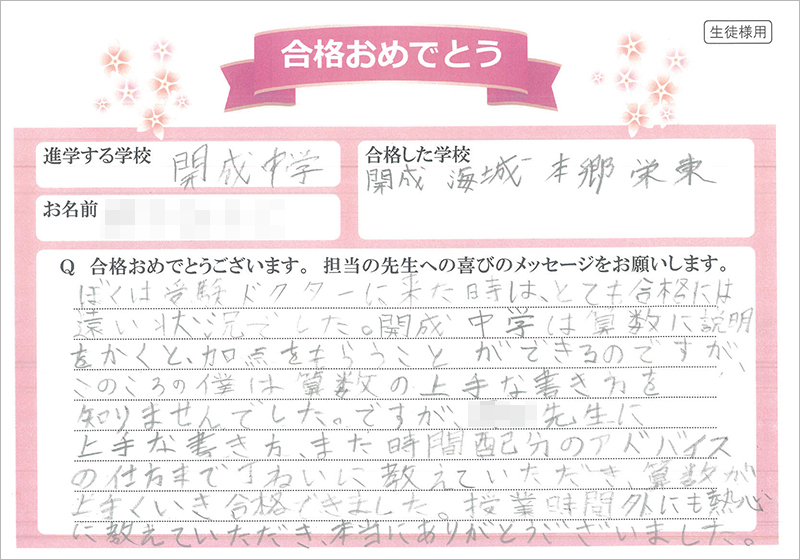 生徒様用
合格おめでとう
進学する学校 開成中学
合格した学校
開成 海城 本郷 栄東
お名前
Q 合格おめでとうございます。担当の先生への喜びのメッセージをお願いします。
ぼくは受験ドクターに来た時は、とても合格には
遠い状況でした。開成中学は算数に説明
をかくと、加点をもらうことができるのですが、
このころの僕は算数の上手な書き方を
知りませんでした。ですが、先生に
上手な書き方、また時間配分のアドバイス
の仕方まで丁ねいに教えていただき、算数が
上手くいき合格できました。授業時間外にも熱心
に教えていただき、本当にありがとうございました。